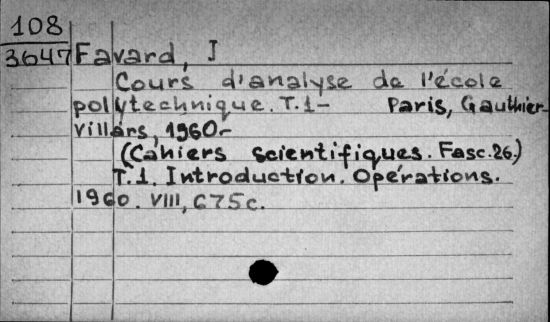 108
3647 Favard, J
Cours d'analyse de l'école
polytechnique. T.1- Paris, Gauthier-
Villars, 1960-
(Cahiers scientifiques. Fasc.26.)
T.1. Introduction. Opérations.
1960. VIII, 675c.